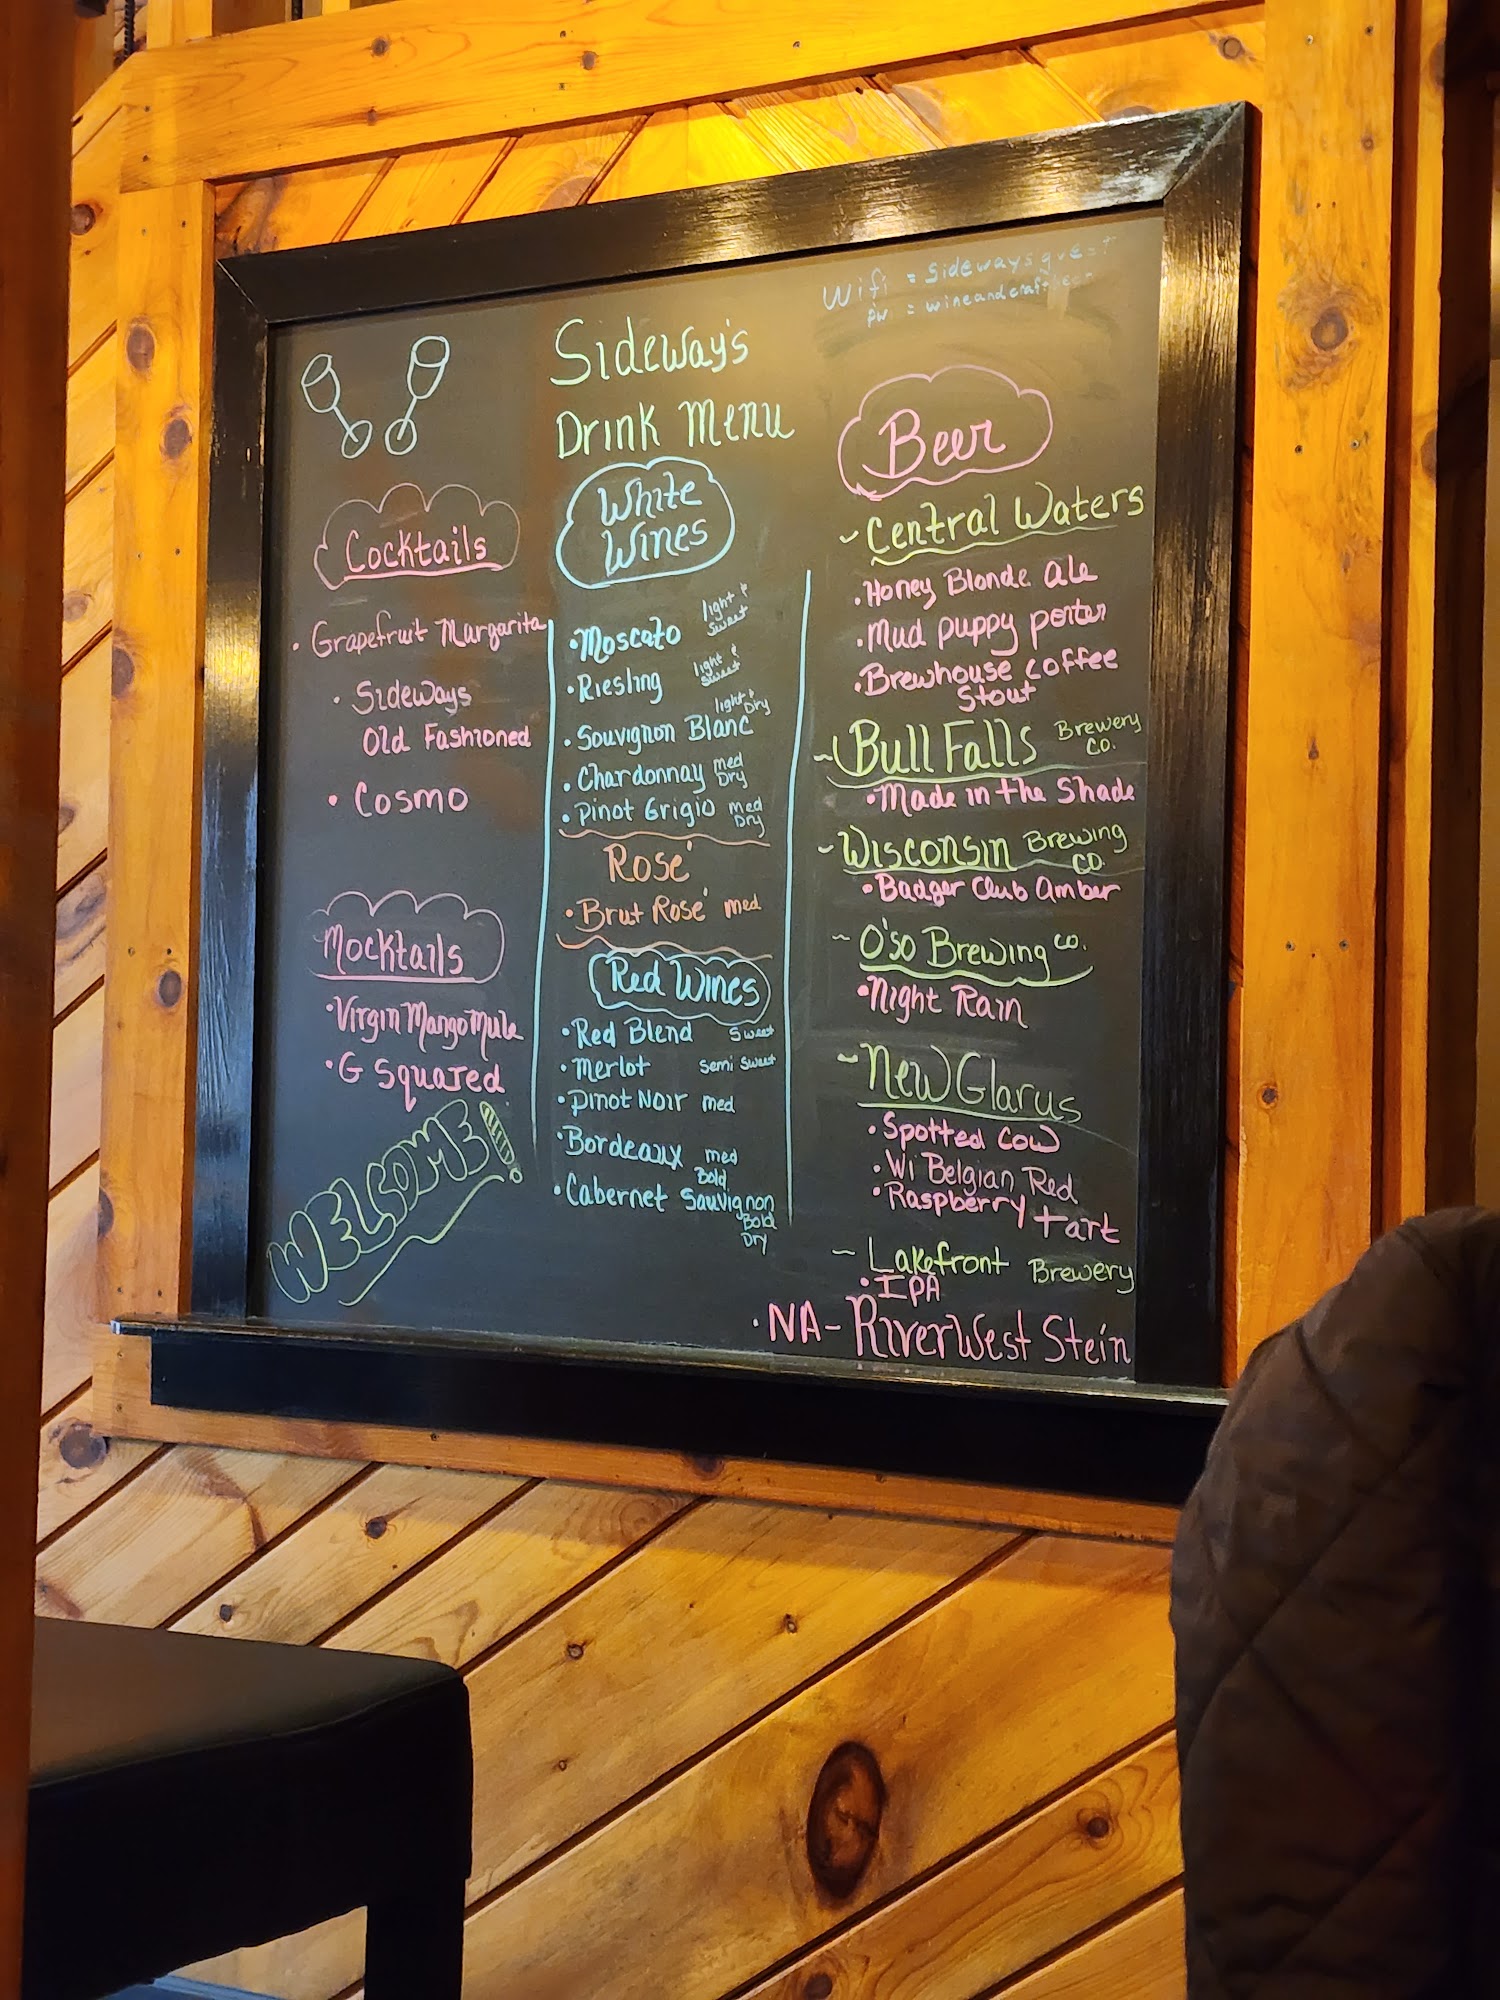 Wifi = Sidewaysguest
pw = wineandcraft
Sideway's
Drink Menu
Cocktails
• Grapefruit Margarita
• Sideways
Old Fashioned
• Cosmo
Mocktails
• Virgin Mango Mule
• G Squared
WELCOME!
White
Wines
• Moscato light & sweet
• Riesling light & sweet
• Souvignon Blanc light & Dry
• Chardonnay med Dry
• Pinot Grigio med Dry
Rosé
• Brut Rosé med
Red Wines
• Red Blend Sweet
• Merlot Semi Sweet
• Pinot Noir med
• Bordeaux med Bold
• Cabernet Sauvignon Bold Dry
Beer
~ Central Waters
• Honey Blonde ale
• Mud puppy porter
• Brewhouse coffee
Stout
~ Bull Falls Brewery Co.
• Made in the Shade
~ Wisconsin Brewing Co.
• Badger Club Amber
~ O'so Brewing Co.
• Night Rain
~ New Glarus
• Spotted Cow
• Wi Belgian Red
• Raspberry tart
~ Lakefront Brewery
• IPA
• NA- RiverWest Stein